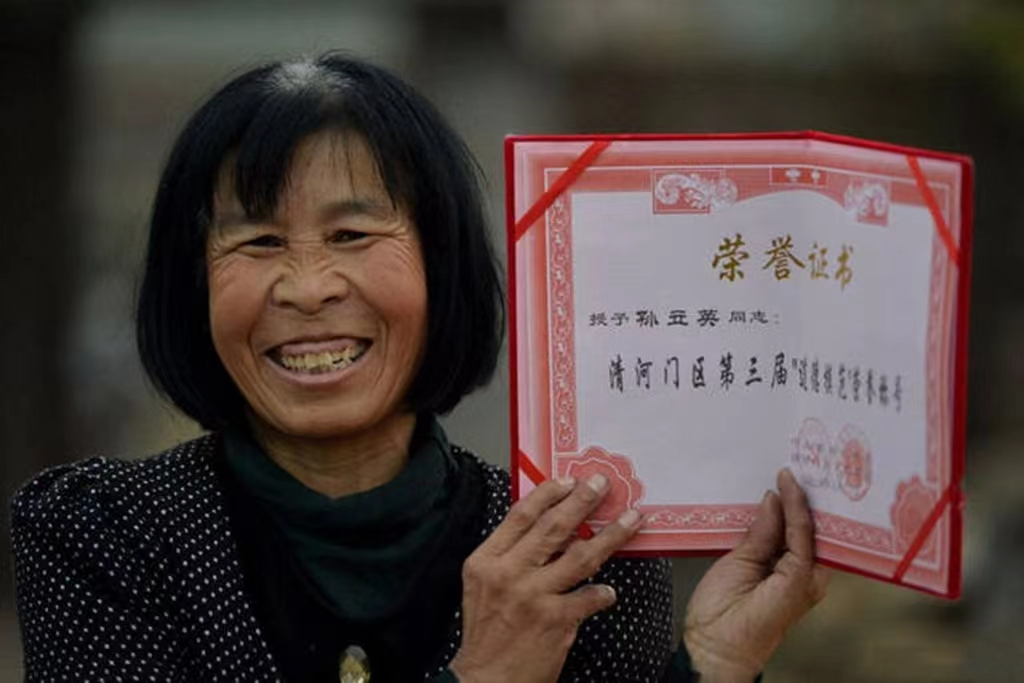 荣誉证书
授予孙立英同志：
清河门区第三届"道德模范"荣誉称号